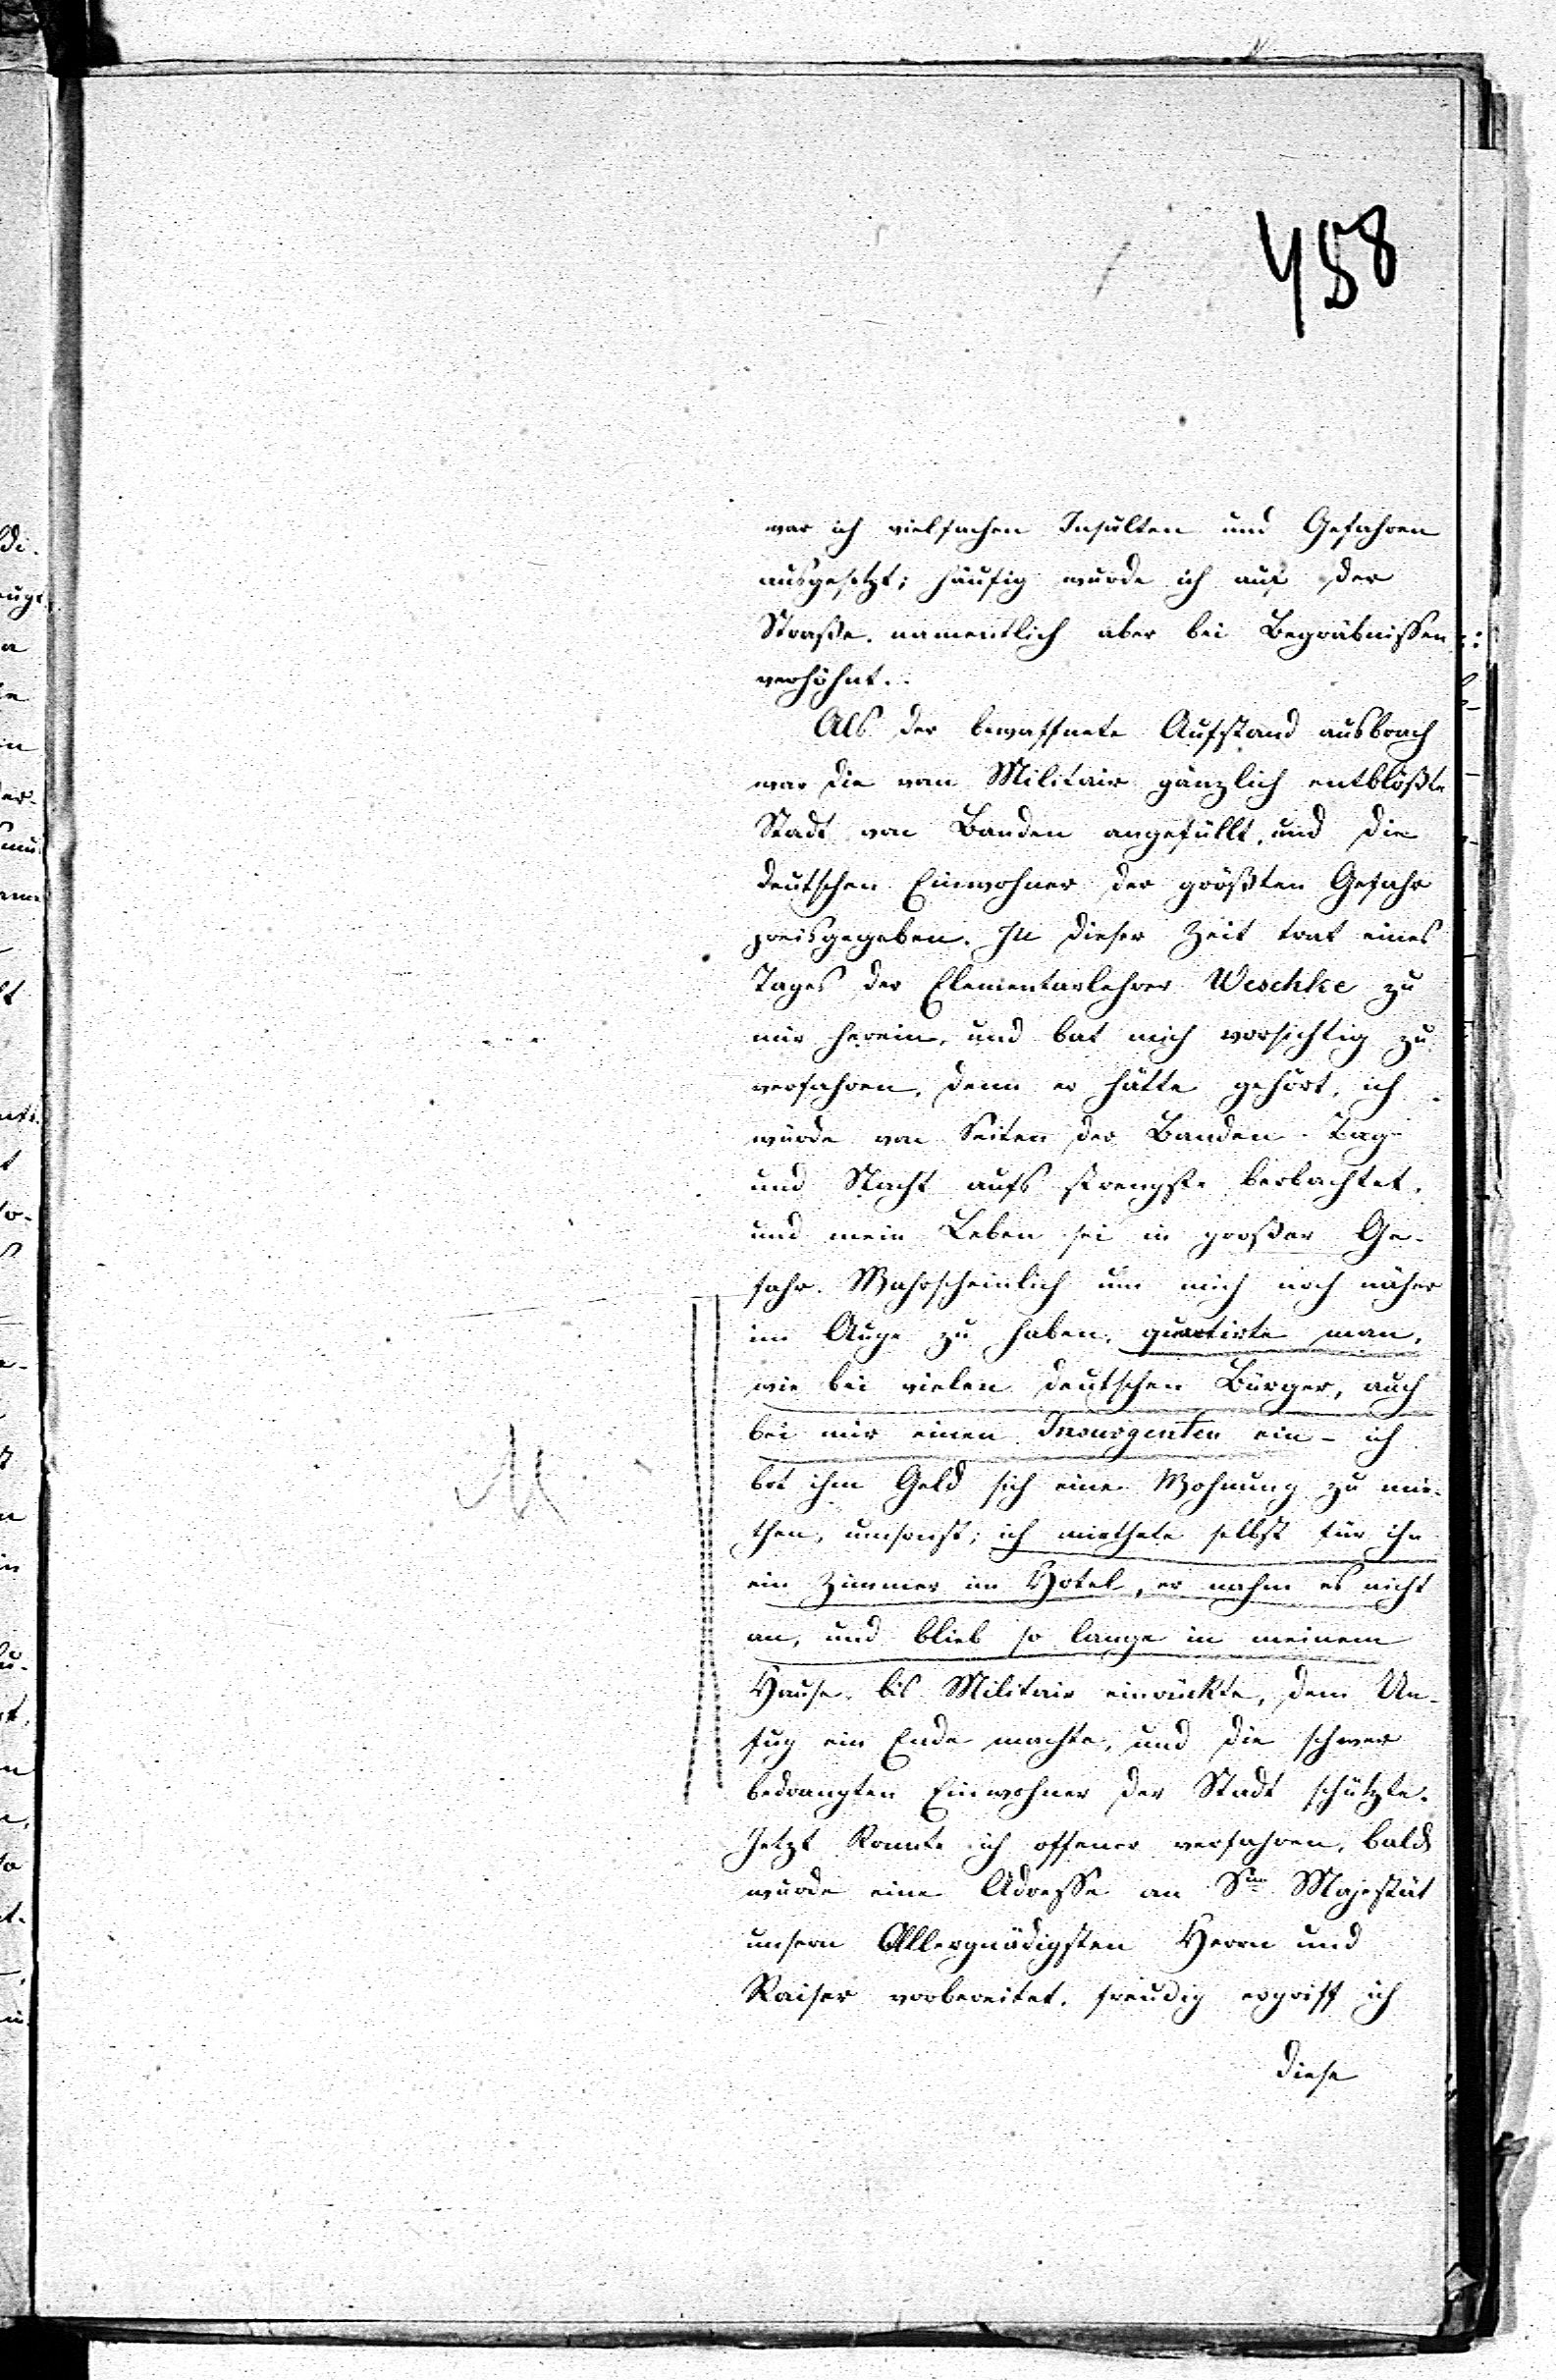 458
war ich vielfachen Insulten und Gefahren
ausgesetzt; häufig wurde ich auf der
Straße, namentlich aber bei Begräbnissen
verhöhnt.
Als der bewaffnete Aufstand ausbrach
war die von Militair gänzlich entblößte
Stadt von Banden angefüllt, und die
deutschen Einwohner der größten Gefahr
preisgegeben. In dieser Zeit trat eines
Tages der Elementarlehrer Weschke zu
mir herein, und bat mich vorsichtig zu
verfahren, denn er hätte gehört, ich
würde von Seiten der Banden Tag
und Nacht aufs strengste beobachtet,
und mein Leben sei in großer Ge-
fahr. Wahrscheinlich um mich noch näher
im Auge zu haben, quartirte man,
wie bei vielen deutschen Bürger, auch
bei mir einen Insurgenten ein - ich
bot ihm Geld sich eine Wohnung zu mie-
then, umsonst; ich miethete selbst für ihn
ein Zimmer im Hotel, er nahm es nicht
an, und blieb so lange in meinem
Hause, bis Militair einrückte, dem Un-
fug ein Ende machte, und die schwer
bedrangten Einwohner der Stadt schützte.
Jetzt konnte ich offener verfahren, bald
wurde eine Adresse an Sne Majestät
unsern Allergnädigsten Herrn und
Kaiser vorbereitet, freudig ergriff ich
diese